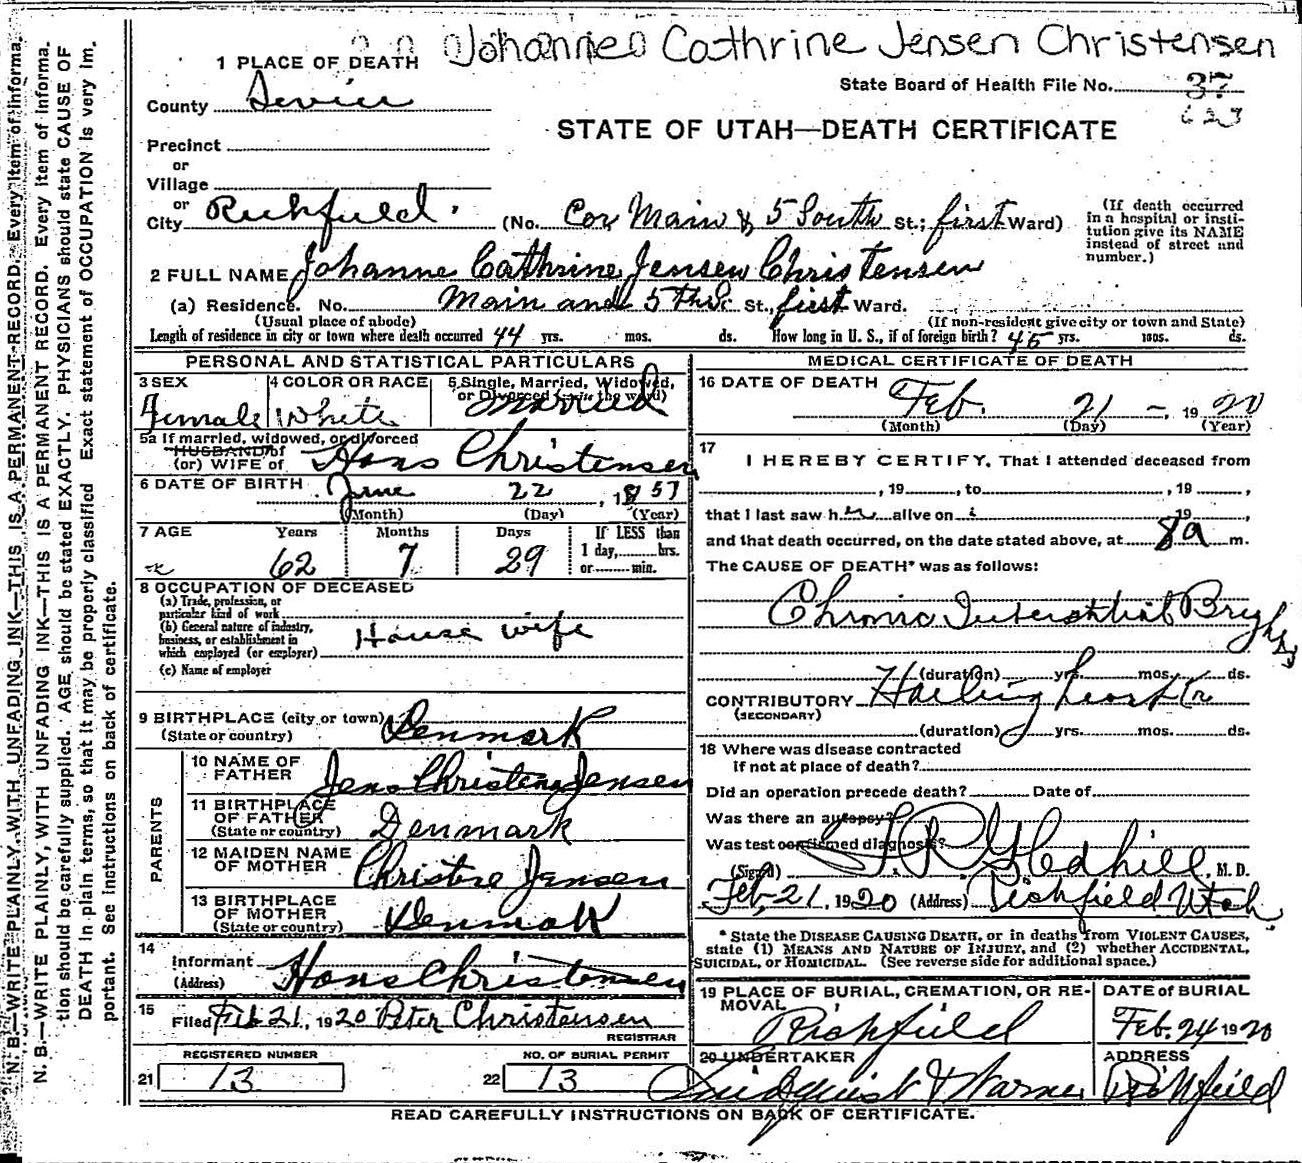 Johanne Cathrine Jensen Christensen
1 PLACE OF DEATH
State Board of Health File No. 37
623
County Sevier
STATE OF UTAH—DEATH CERTIFICATE
Precinct
or
Village
or
City Richfield. (No. Cor Main & 5 South St.; first Ward)
(If death occurred in a hospital or insti-
tution give its NAME
instead of street and
number.)
2 FULL NAME Johanne Cathrine Jensen Christensen
(a) Residence. No. Main and 5th So. St., first Ward.
(Usual place of abode) (If non-resident give city or town and State)
Length of residence in city or town where death occurred 44 yrs. mos. ds. How long in U. S., if of foreign birth? 45 yrs. mos. ds.
PERSONAL AND STATISTICAL PARTICULARS
3 SEX Female
4 COLOR OR RACE White
5 Single, Married, Widowed, or Divorced (write the word) Married
5a If married, widowed, or divorced
HUSBAND of
(or) WIFE of Hans Christensen
6 DATE OF BIRTH June 22, 1857
(Month) (Day) (Year)
7 AGE Years Months Days If LESS than
62 7 29 1 day, hrs.
or min.
8 OCCUPATION OF DECEASED
(a) Trade, profession, or
particular kind of work
(b) General nature of industry,
business, or establishment in
which employed (or employer) House wife
(c) Name of employer
9 BIRTHPLACE (city or town) Denmark
(State or country)
PARENTS
10 NAME OF FATHER Jens Christian Jensen
11 BIRTHPLACE OF FATHER Denmark
(State or country)
12 MAIDEN NAME OF MOTHER Christine Jensen
13 BIRTHPLACE OF MOTHER Denmark
(State or country)
14 Informant Hans Christensen
(Address)
15 Filed Feb 21, 1920 Peter Christensen
REGISTRAR
REGISTERED NUMBER NO. OF BURIAL PERMIT
21 13 22 13
MEDICAL CERTIFICATE OF DEATH
16 DATE OF DEATH Feb. 21 –, 1920
(Month) (Day) (Year)
17 I HEREBY CERTIFY, That I attended deceased from
, 19 , to , 19 ,
that I last saw her alive on 19 ,
and that death occurred, on the date stated above, at 8a m.
The CAUSE OF DEATH* was as follows:
Chronic Interstitial Brights
(duration) yrs. mos. ds.
CONTRIBUTORY Failing heart
(SECONDARY)
(duration) yrs. mos. ds.
18 Where was disease contracted
if not at place of death?
Did an operation precede death? Date of
Was there an autopsy?
Was test confirmed diagnosis?
(Signed) Gledhill, M. D.
Feb. 21, 1920 (Address) Richfield Utah,
* State the DISEASE CAUSING DEATH, or in deaths from VIOLENT CAUSES,
state (1) MEANS AND NATURE OF INJURY, and (2) whether ACCIDENTAL,
SUICIDAL, or HOMICIDAL. (See reverse side for additional space.)
19 PLACE OF BURIAL, CREMATION, OR RE-
MOVAL Richfield
DATE of BURIAL
Feb. 24 1920
20 UNDERTAKER
ADDRESS
Richfield
READ CAREFULLY INSTRUCTIONS ON BACK OF CERTIFICATE.
N. B.—WRITE PLAINLY, WITH UNFADING INK—THIS IS A PERMANENT RECORD. Every item of informa-
N. B.—WRITE PLAINLY, WITH UNFADING INK—THIS IS A PERMANENT RECORD. Every item of informa-
tion should be carefully supplied. AGE should be stated EXACTLY. PHYSICIANS should state CAUSE OF
DEATH in plain terms, so that it may be properly classified Exact statement of OCCUPATION is very im-
portant. See instructions on back of certificate.